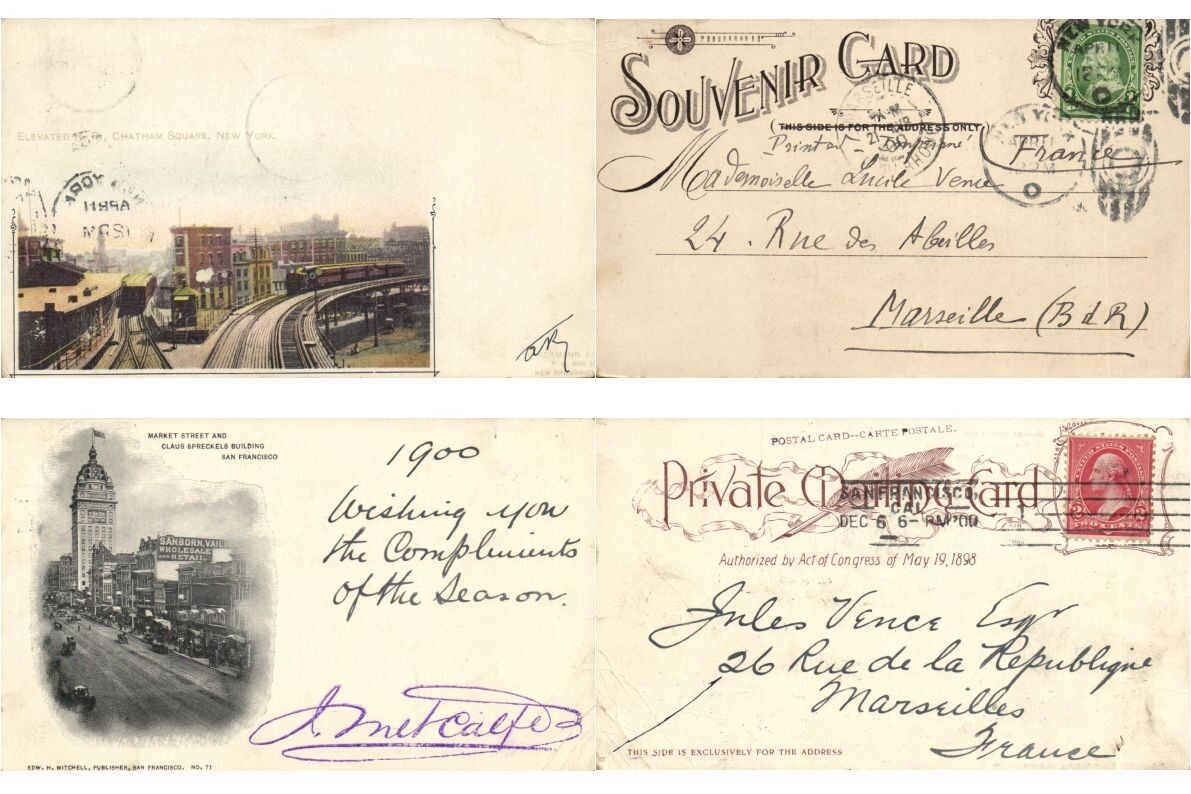 ELEVATED R.R., CHATHAM SQUARE, NEW YORK.
SOUVENIR CARD
(THIS SIDE IS FOR THE ADDRESS ONLY)
Printed - Imprimé
Mademoiselle Lucile Vence
24. Rue des Abeilles
Marseille (B d R)
France
NEW YORK
MARSEILLE
MARKET STREET AND
CLAUS SPRECKELS BUILDING
SAN FRANCISCO
SANBORN, VAIL
WHOLESALE
AND RETAIL
1900
Wishing you
the Compliments
of the Season.
J. Metcalfe
EDW. H. MITCHELL, PUBLISHER, SAN FRANCISCO. NO. 71
POSTAL CARD--CARTE POSTALE.
Private Mailing Card
SAN FRANCISCO,
CAL.
DEC 6 6-PM '00
Authorized by Act of Congress of May 19, 1898
TWO CENTS
Jules Vence Esqr
26 Rue de la Republique
Marseilles
France
THIS SIDE IS EXCLUSIVELY FOR THE ADDRESS